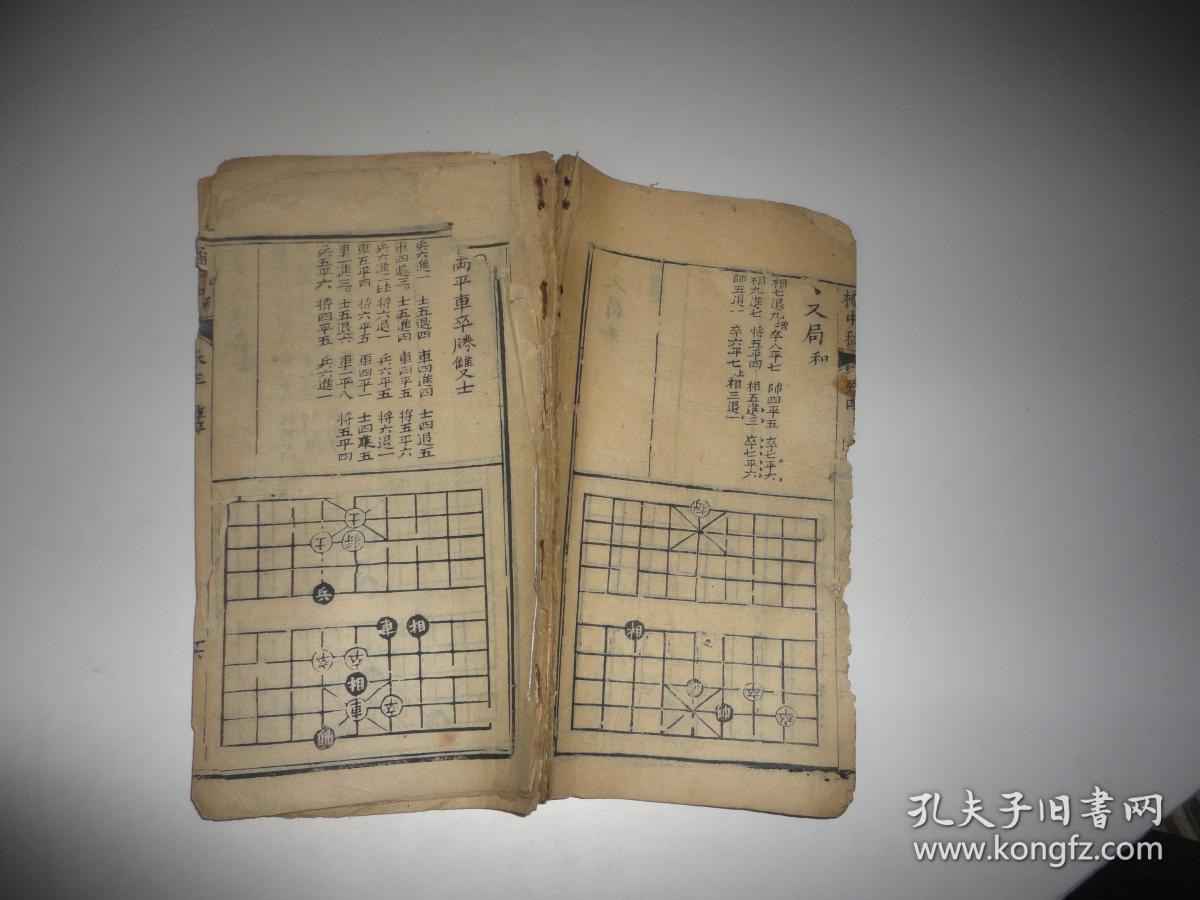 又局和
相七退九 增卒八平七 師四平五 卒七平六
相九進七 将五平四 相五進三 卒七平六
師五退一 卒六平七 相三退一
将
相
卒
卒
両平車卒勝雙士
兵六進一 士五退四 車四進四 士四退五
車四退三 士五進四 車四平五 将五平六
兵六進一 将六退一 兵六平五 将六退一
車五平四 将六平五 車四平一 士四進五
車一進三 士五退六 車一平八 将五平四
兵五平六 将四平五 兵六進一
士
士 将
兵
車 相
卒 卒
相
車 卒
帥
孔夫子旧书网
www.kongfz.com